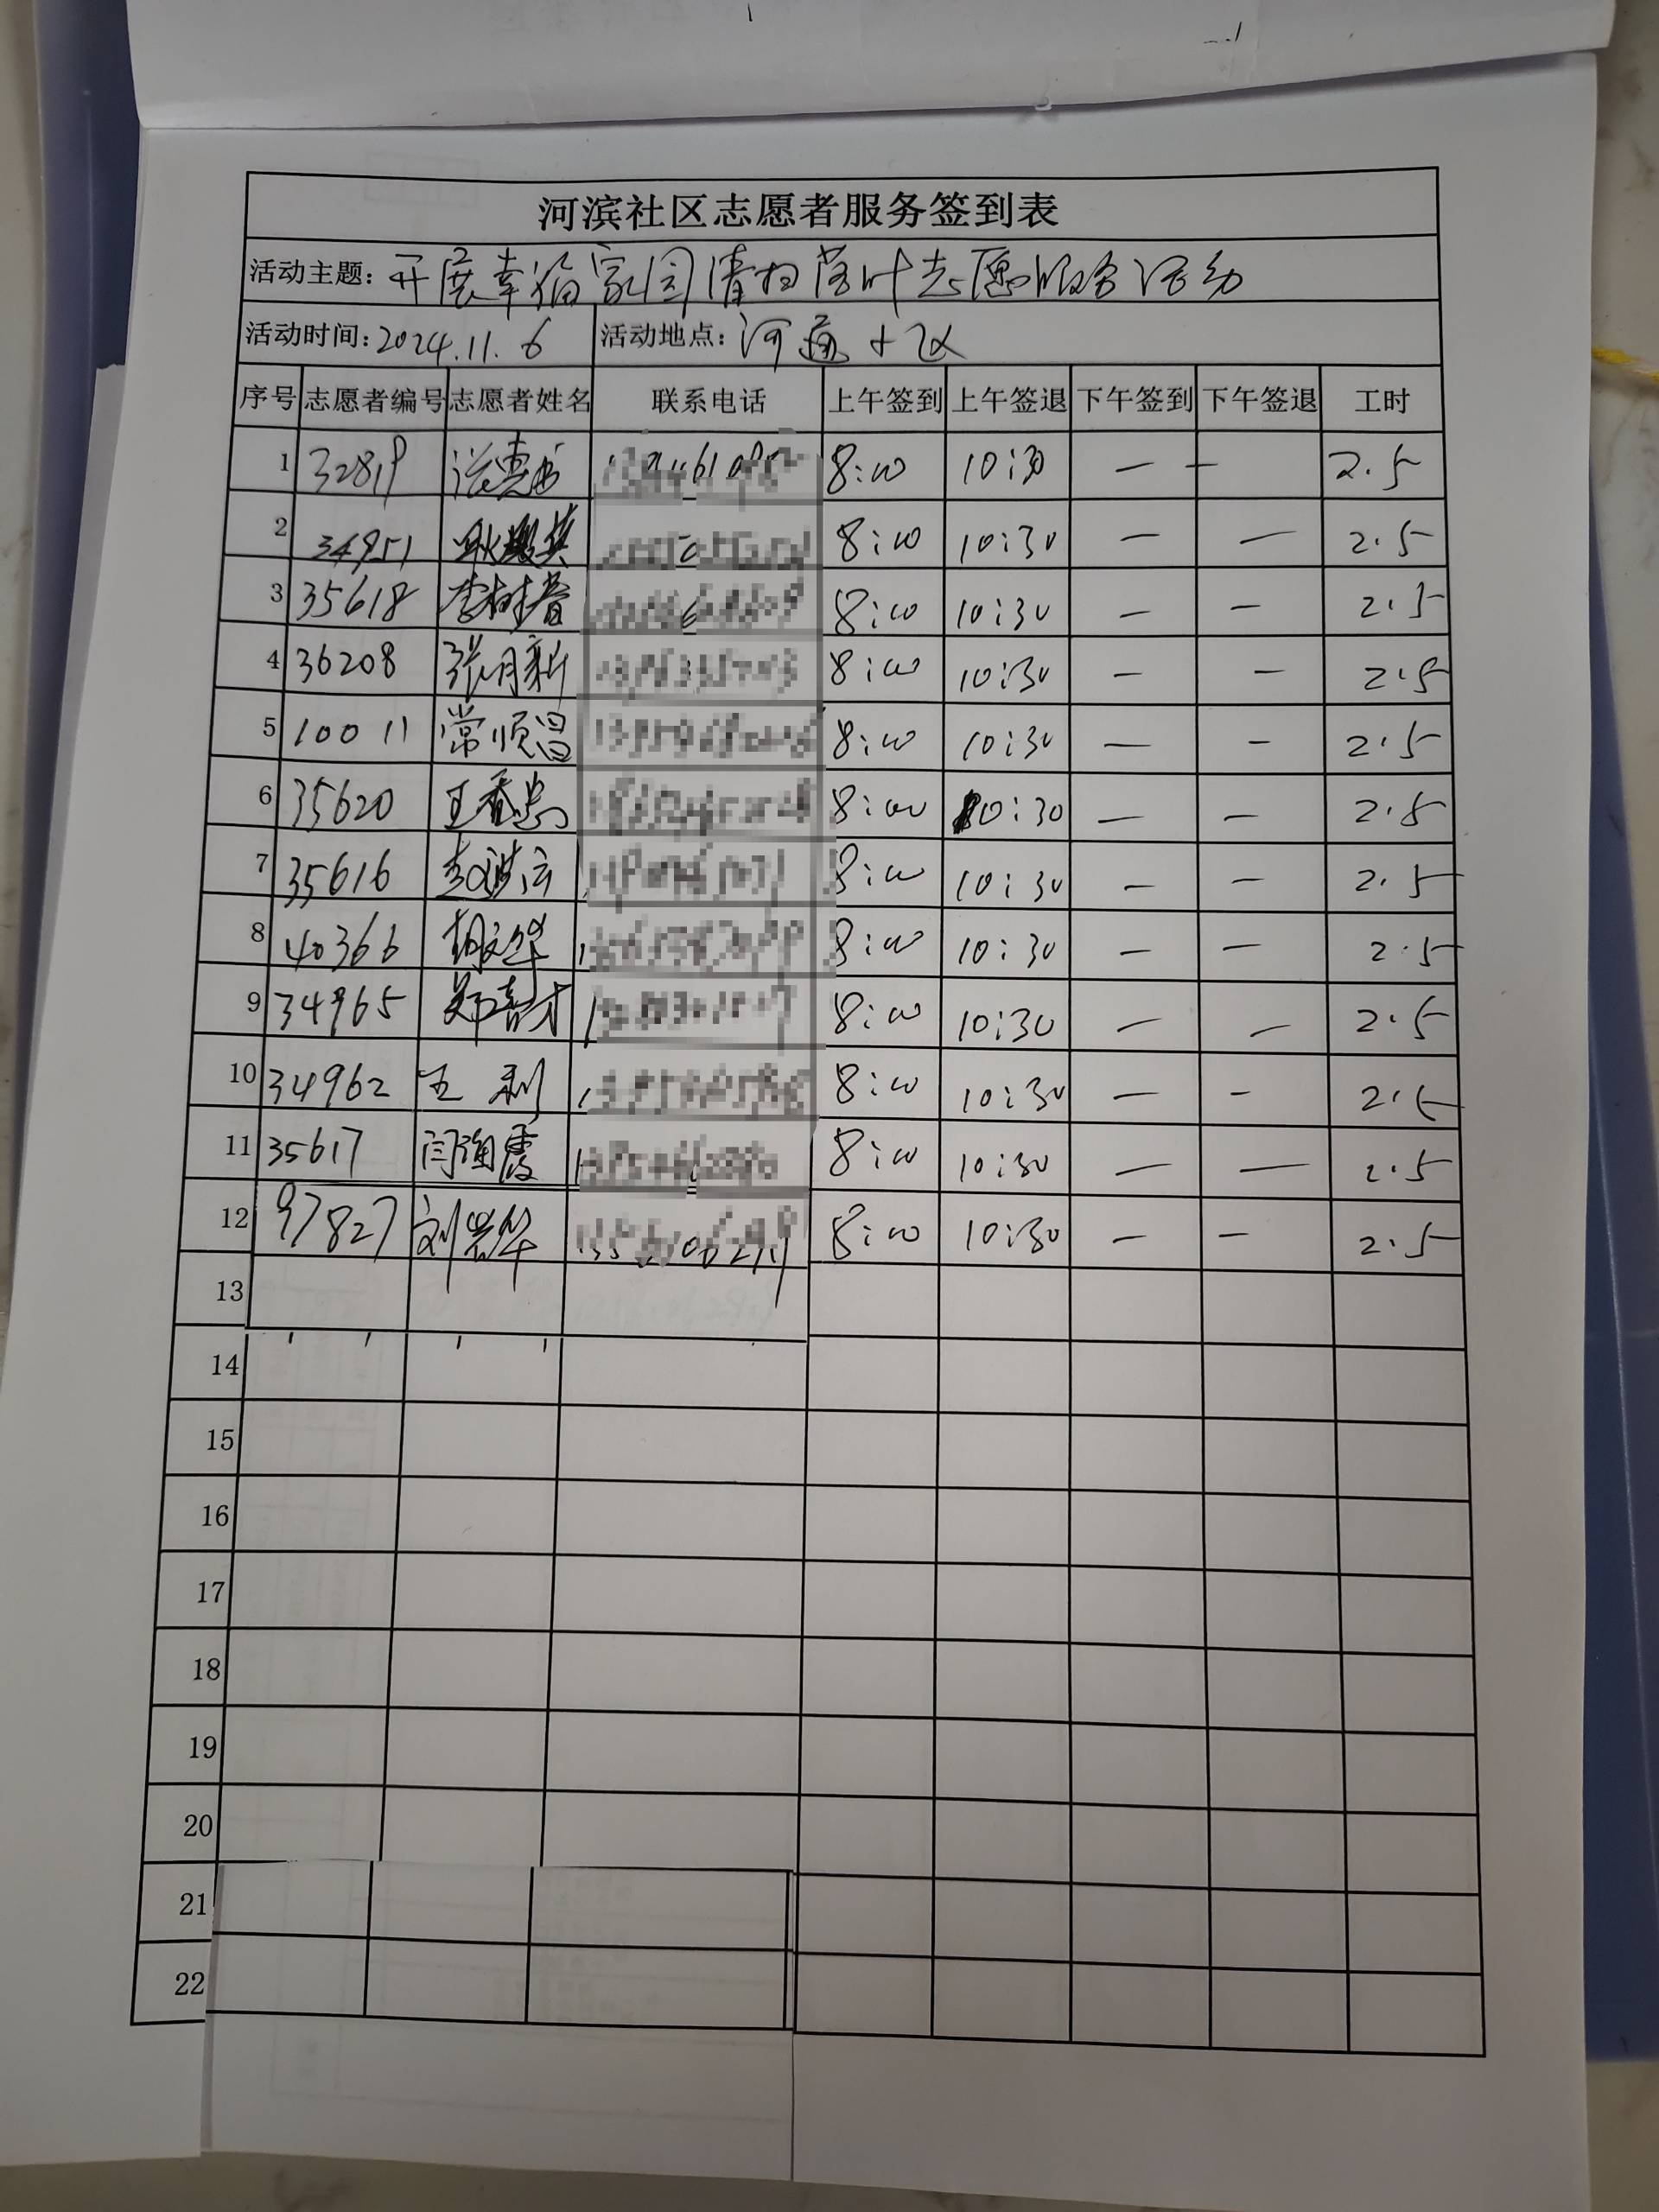 河滨社区志愿者服务签到表
活动主题：开展幸福家园清扫落叶志愿服务活动
活动时间：2024.11.6 活动地点：河滨小区
序号 志愿者编号 志愿者姓名 联系电话 上午签到 上午签退 下午签到 下午签退 工时
1 32819 8:00 10:30 — — 2.5
2 34951 8:00 10:30 — — 2.5
3 35618 李树春 8:00 10:30 — — 2.5
4 36208 张月新 8:00 10:30 — — 2.5
5 10011 常顺昌 8:00 10:30 — — 2.5
6 35620 8:00 10:30 — — 2.5
7 35616 8:00 10:30 — — 2.5
8 40366 胡文华 8:00 10:30 — — 2.5
9 34965 郑喜才 8:00 10:30 — — 2.5
10 34962 王利 8:00 10:30 — — 2.5
11 35617 8:00 10:30 — — 2.5
12 97827 刘岩华 8:00 10:30 — — 2.5
13
14
15
16
17
18
19
20
21
22